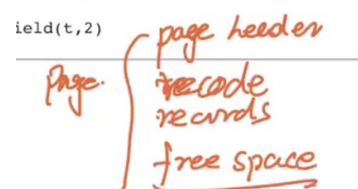 ield(t,2)
page header
Page.
recode
records
free space